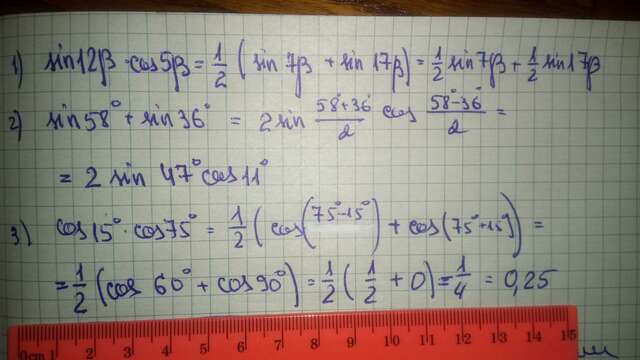 1) sin12β·cos5β = 1/2 (sin7β + sin17β) = 1/2 sin7β + 1/2 sin17β
2) sin58° + sin36° = 2sin (58°+36°)/2 cos (58°-36°)/2 =
= 2 sin 47° cos11°
3) cos15°·cos75° = 1/2 (cos(75°-15°) + cos(75°+15°)) =
= 1/2 (cos 60° + cos90°) = 1/2 (1/2 + 0) = 1/4 = 0,25
0cm 1 2 3 4 5 6 7 8 9 10 11 12 13 14 15